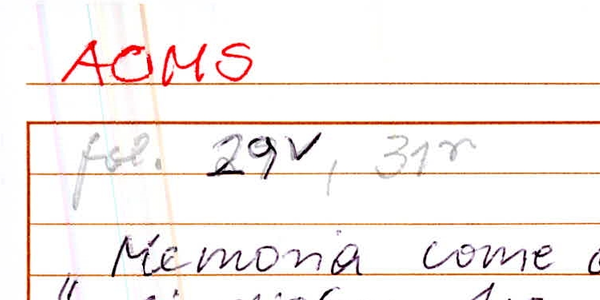 AOMS
fol. 29v, 31r
Memoria come